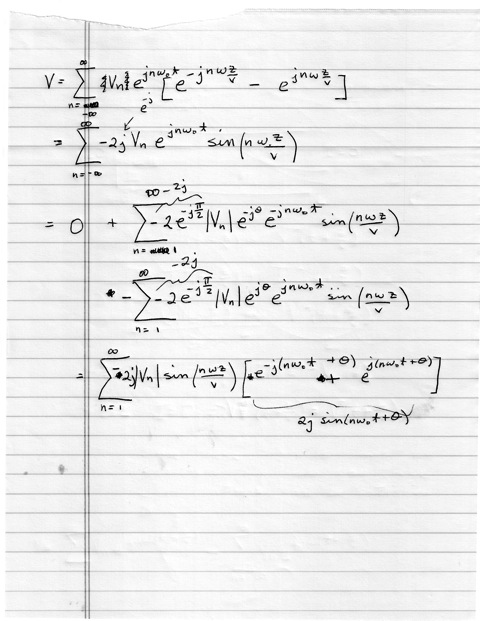 V = \sum_{n=-\infty}^{\infty} {V_n} e^{jnω_0t} [ e^{-jnω z/v} - e^{jnω z/v} ]
e^{-j}
= \sum_{n=-\infty}^{\infty} -2j V_n e^{jnω_0t} sin(nω z/v)
-2j
= 0 + \sum_{n=1}^{\infty} -2e^{-jπ/2} |V_n| e^{-jθ} e^{-jnω_0t} sin(nωz/v)
-2j
- \sum_{n=1}^{\infty} -2e^{-jπ/2} |V_n| e^{jθ} e^{jnω_0t} sin(nωz/v)
= \sum_{n=1}^{\infty} -2j|V_n| sin(nωz/v) [ e^{-j(nω_0t+θ)} + e^{j(nω_0t+θ)} ]
2j sin(nω_0t+θ)